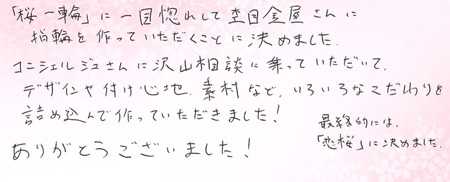 「桜一輪」に一目惚れして杢目金屋さんに
指輪を作っていただくことに決めました。
コンシェルジュさんに沢山相談に乗っていただいて、
デザインや付け心地、素材など、いろいろなこだわりを
詰め込んで作っていただきました!
ありがとうございました!
最終的には、
「恋桜」に決めました。